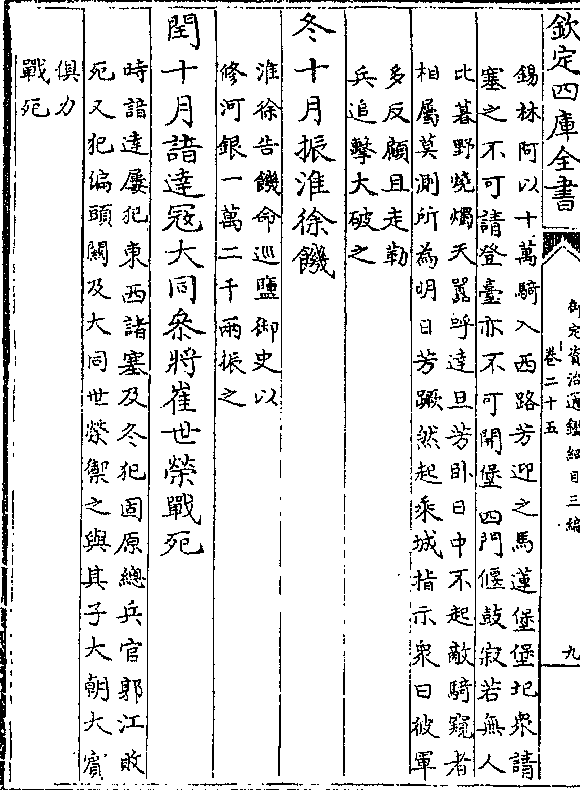 欽定四庫全書
御定資治通鑑綱目三編
卷二十五
九
錫林阿以十萬騎入西路芳迎之馬蓮堡堡圮衆請
塞之不可請登臺亦不可開堡四門偃鼓寂若無人
比暮野燒燭天囂呼達旦芳卧日中不起敵騎窺者
相屬莫測所為明日芳蹶然起乘城指示衆曰彼軍
多反顧且走勒
兵追擊大破之
冬十月振淮徐饑
淮徐告饑命巡鹽御史以
修河銀一萬二千兩振之
閏十月諳達寇大同叅將崔世榮戰死
時諳達屢犯東西諸塞及冬犯固原總兵官郭江敗
死又犯偏頭關及大同世榮禦之與其子大朝大賓
俱力
戰死